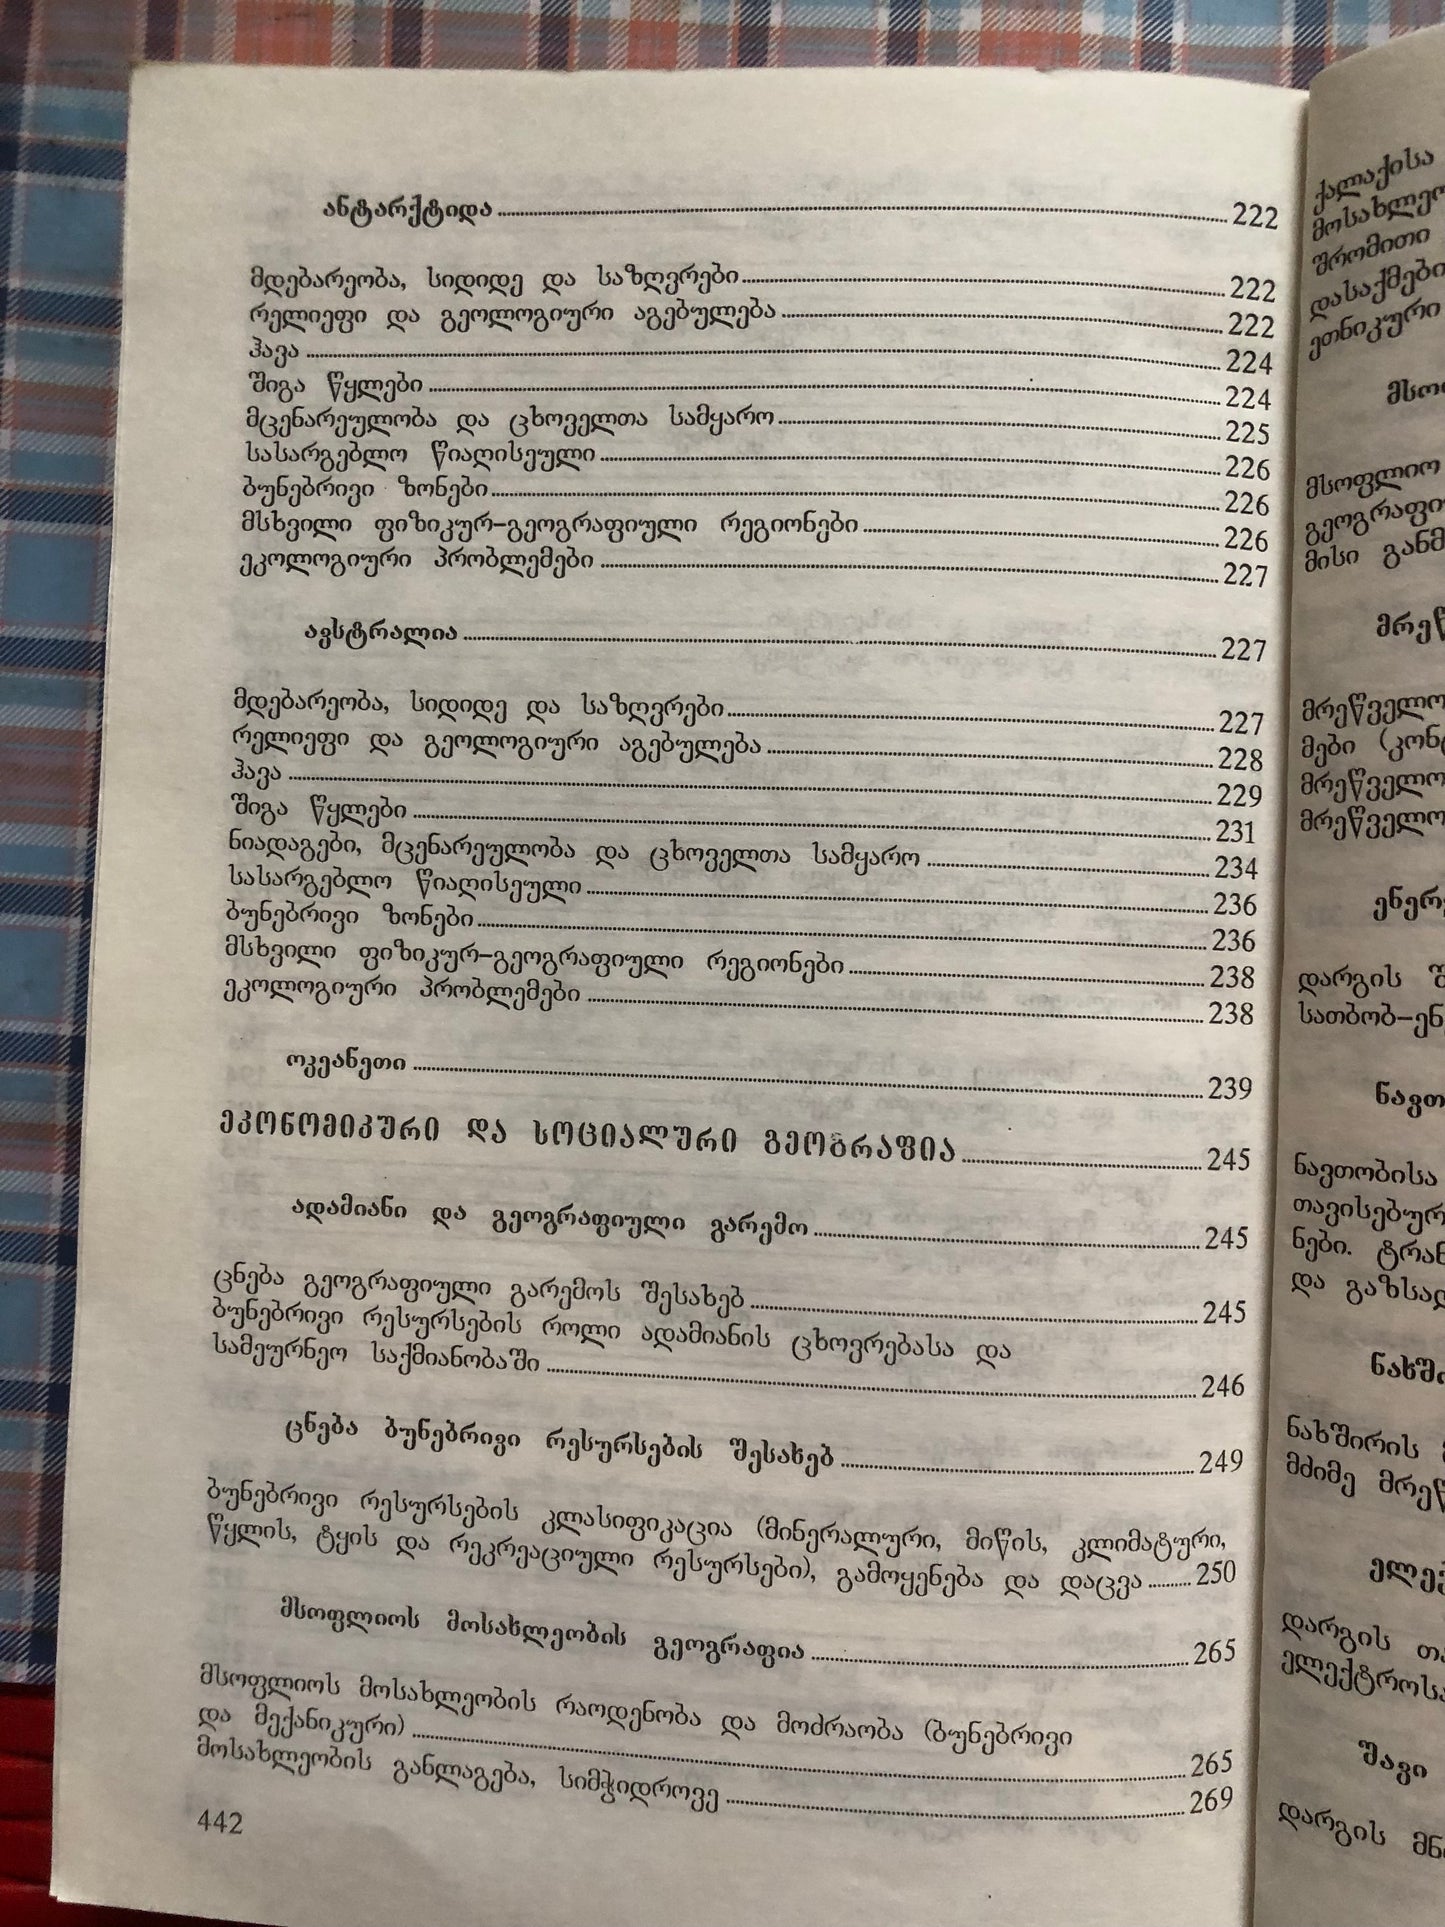 ანტარქტიდა 222
მდებარეობა, სიდიდე და საზღვრები 222
რელიეფი და გეოლოგიური აგებულება 222
ჰავა 224
შიგა წყლები 224
მცენარეულობა და ცხოველთა სამყარო 225
სასარგებლო წიაღისეული 226
ბუნებრივი ზონები 226
მსხვილი ფიზიკურ–გეოგრაფიული რეგიონები 226
ეკოლოგიური პრობლემები 227
ავსტრალია 227
მდებარეობა, სიდიდე და საზღვრები 227
რელიეფი და გეოლოგიური აგებულება 228
ჰავა 229
შიგა წყლები 231
ნიადაგები, მცენარეულობა და ცხოველთა სამყარო 234
სასარგებლო წიაღისეული 236
ბუნებრივი ზონები 236
მსხვილი ფიზიკურ–გეოგრაფიული რეგიონები 238
ეკოლოგიური პრობლემები 238
ოკეანეთი 239
ეკონომიკური და სოციალური გეოგრაფია 245
ადამიანი და გეოგრაფიული გარემო 245
ცნება გეოგრაფიული გარემოს შესახებ 245
ბუნებრივი რესურსების როლი ადამიანის ცხოვრებასა და
სამეურნეო საქმიანობაში 246
ცნება ბუნებრივი რესურსების შესახებ 249
ბუნებრივი რესურსების კლასიფიკაცია (მინერალური, მიწის, კლიმატური,
წყლის, ტყის და რეკრეაციული რესურსები), გამოყენება და დაცვა 250
მსოფლიოს მოსახლეობის გეოგრაფია 265
მსოფლიოს მოსახლეობის რაოდენობა და მოძრაობა (ბუნებრივი
და მექანიკური) 265
მოსახლეობის განლაგება, სიმჭიდროვე 269
442
ქალაქისა
შრომითი
ეთნიკური
მსოფლიო
მისი
მები
დარგის
ნავთობისა
ნები.
და
ნახშირის
მძიმე
დარგის
შავი
დარგის